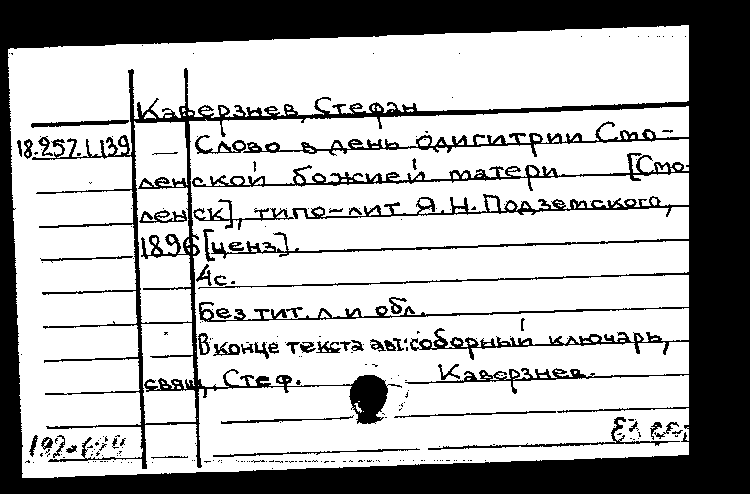 Каверзнев, Стефан
18.257.1.139 — Слово в день одигитрии Смо-
ленской божией матери. [Смо-
ленск], типо-лит Я.Н. Подземского,
1896 [ценз.].
4с.
Без тит. л. и обл.
В конце текста авт.: соборный ключарь,
свящ. Стеф. Каверзнев.
192-624